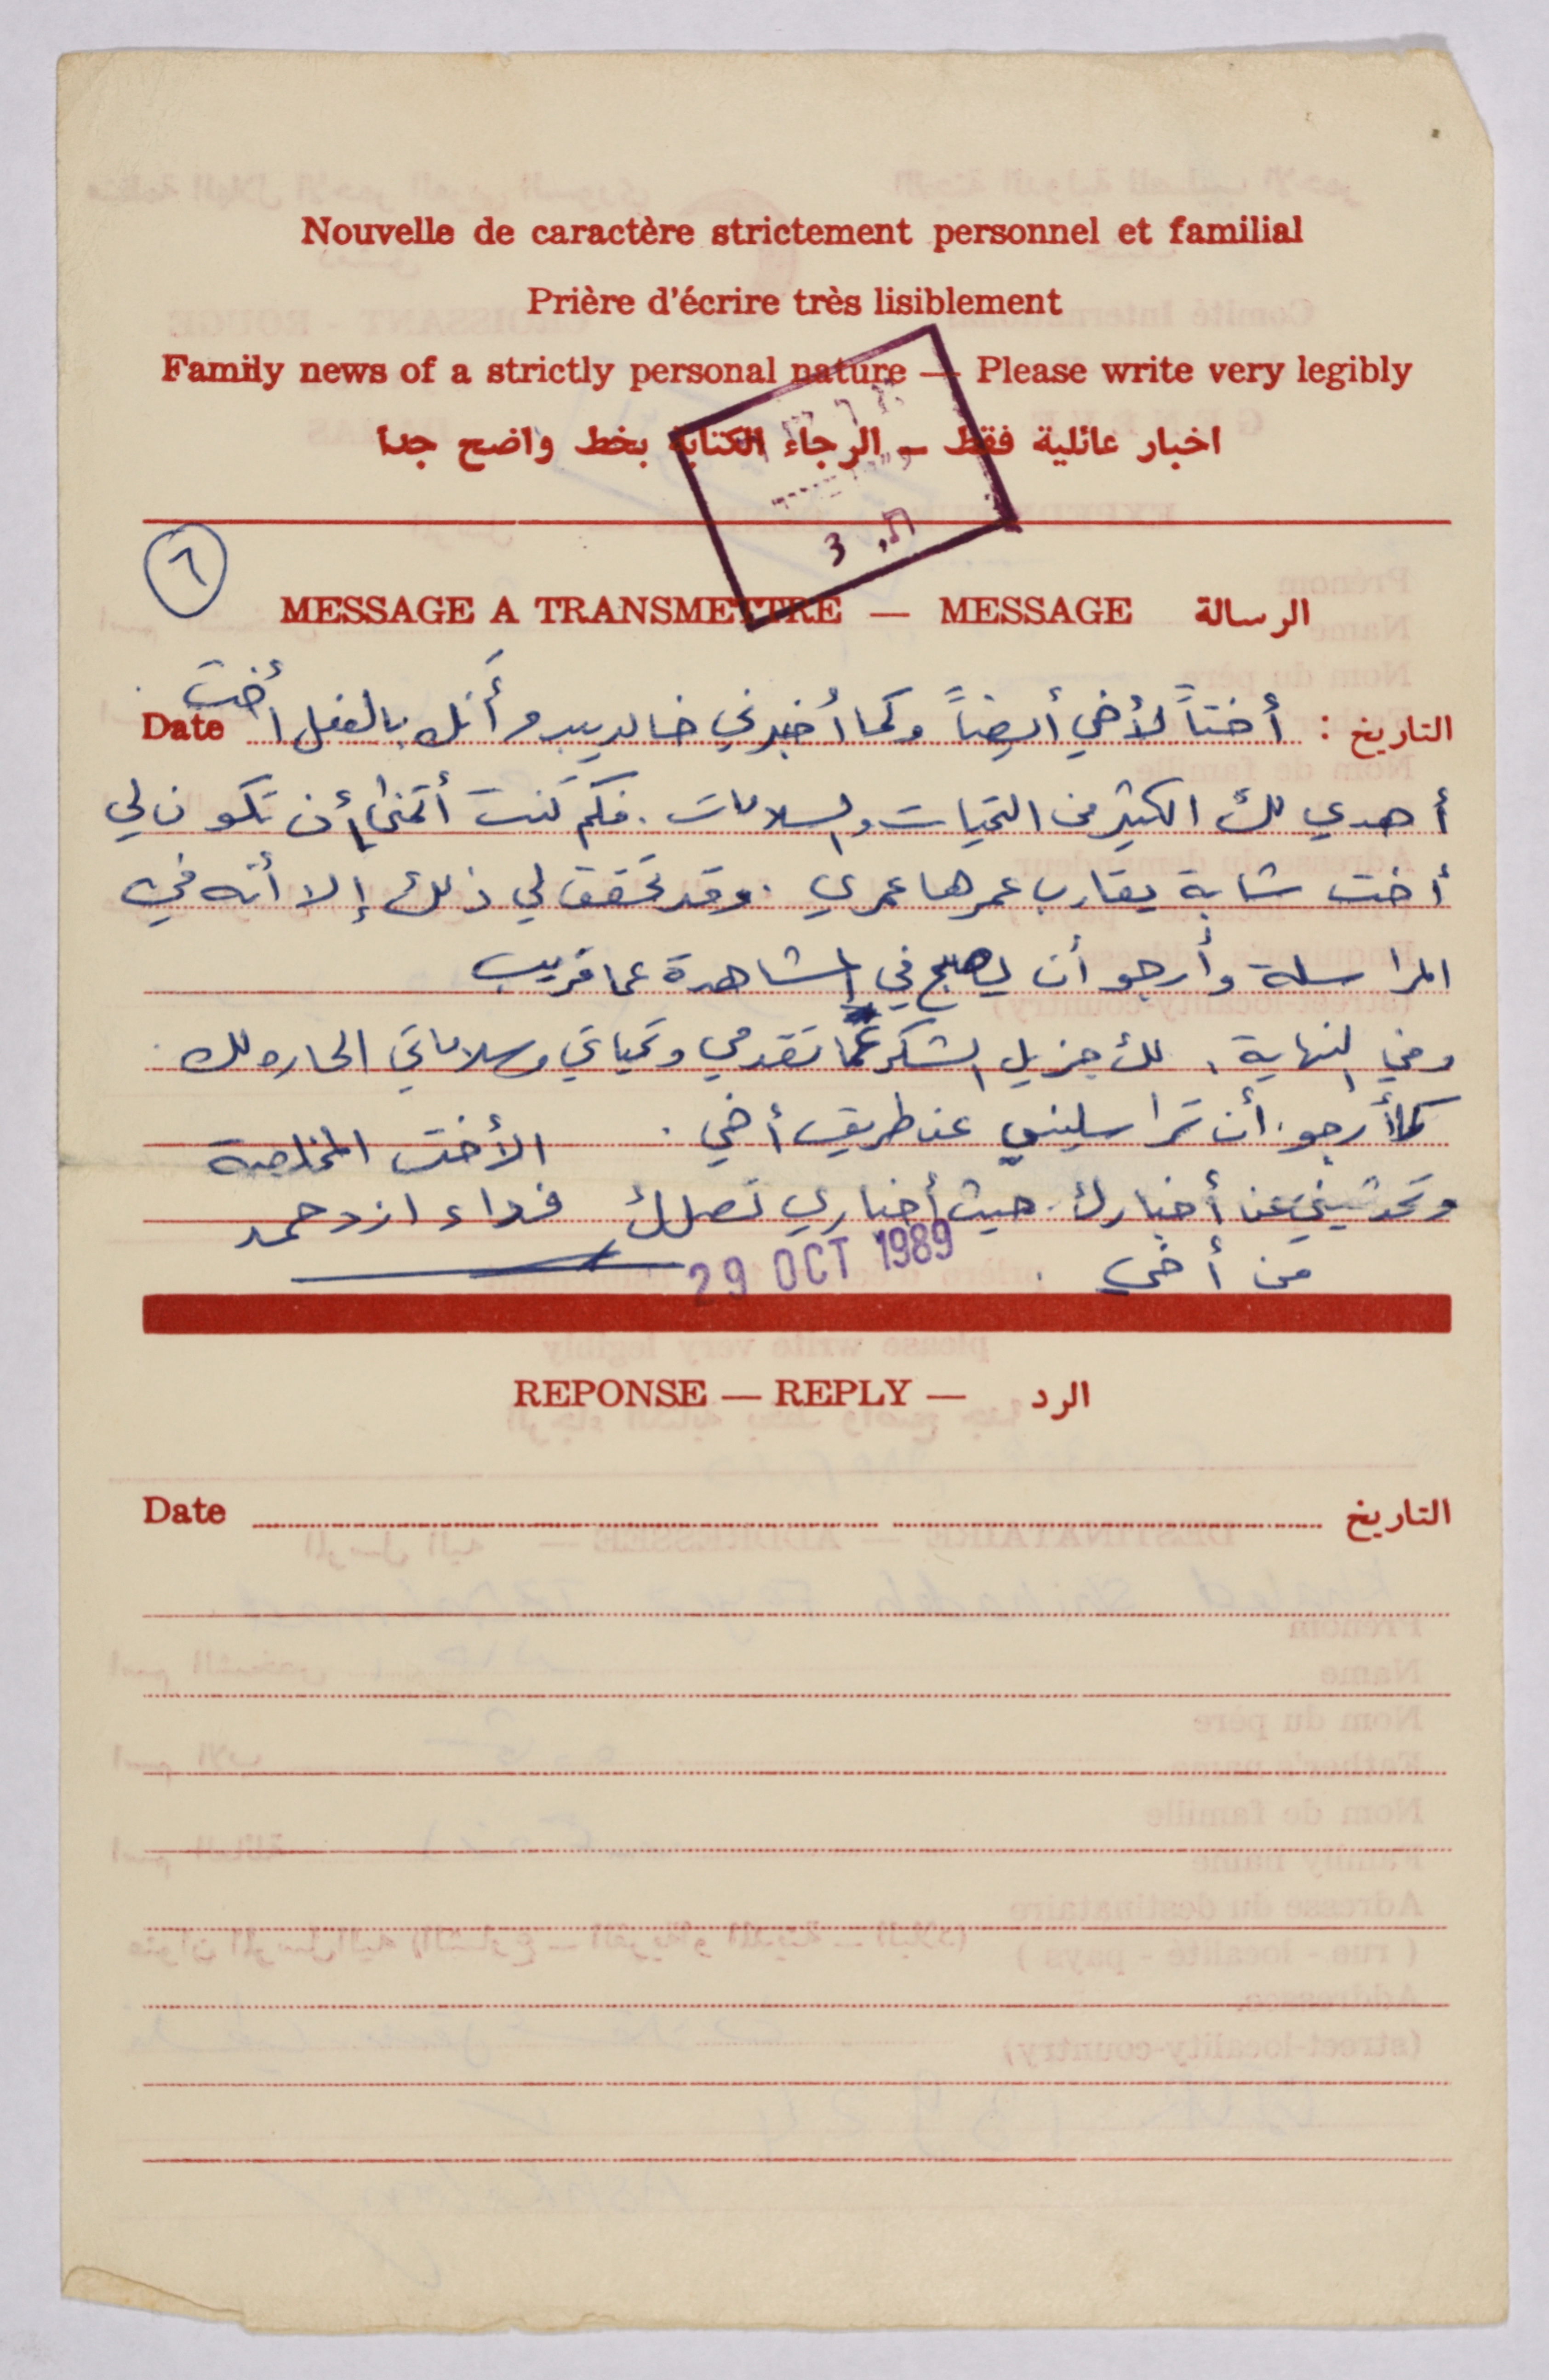 Nouvelle de caractère strictement personnel et familial
Prière d'écrire très lisiblement
Family news of a strictly personal nature — Please write very legibly
اخبار عائلية فقط – الرجاء الكتابة بخط واضح جدا
ת. 3
٦
MESSAGE A TRANSMETTRE — MESSAGE الرسالة
التاريخ : أختاً لأخي أيضاً وكما أخبرني خالد يبدو أنك بالفعل أخت Date
أهدي لك الكثير من التحيات والسلامات . فكم كنت أتمنى أن تكون لي
أخت شابة يقارب عمرها عمري . وقد تحقق لي ذلك إلا أنه في
المراسلة وأرجو أن يصبح في المشاهدة عما قريب
وفي النهاية ، لك جزيل الشكر عما تقدمي وتحياتي وسلاماتي الحاره لك .
كما أرجو أن تراسليني عن طريق أخي . الأخت المخلصة
وتحدثيني عن أخبارك . حيث أخباري تصلك فداء ازدحمد
من أخي .
29 OCT 1989
REPONSE — REPLY — الرد
Date التاريخ